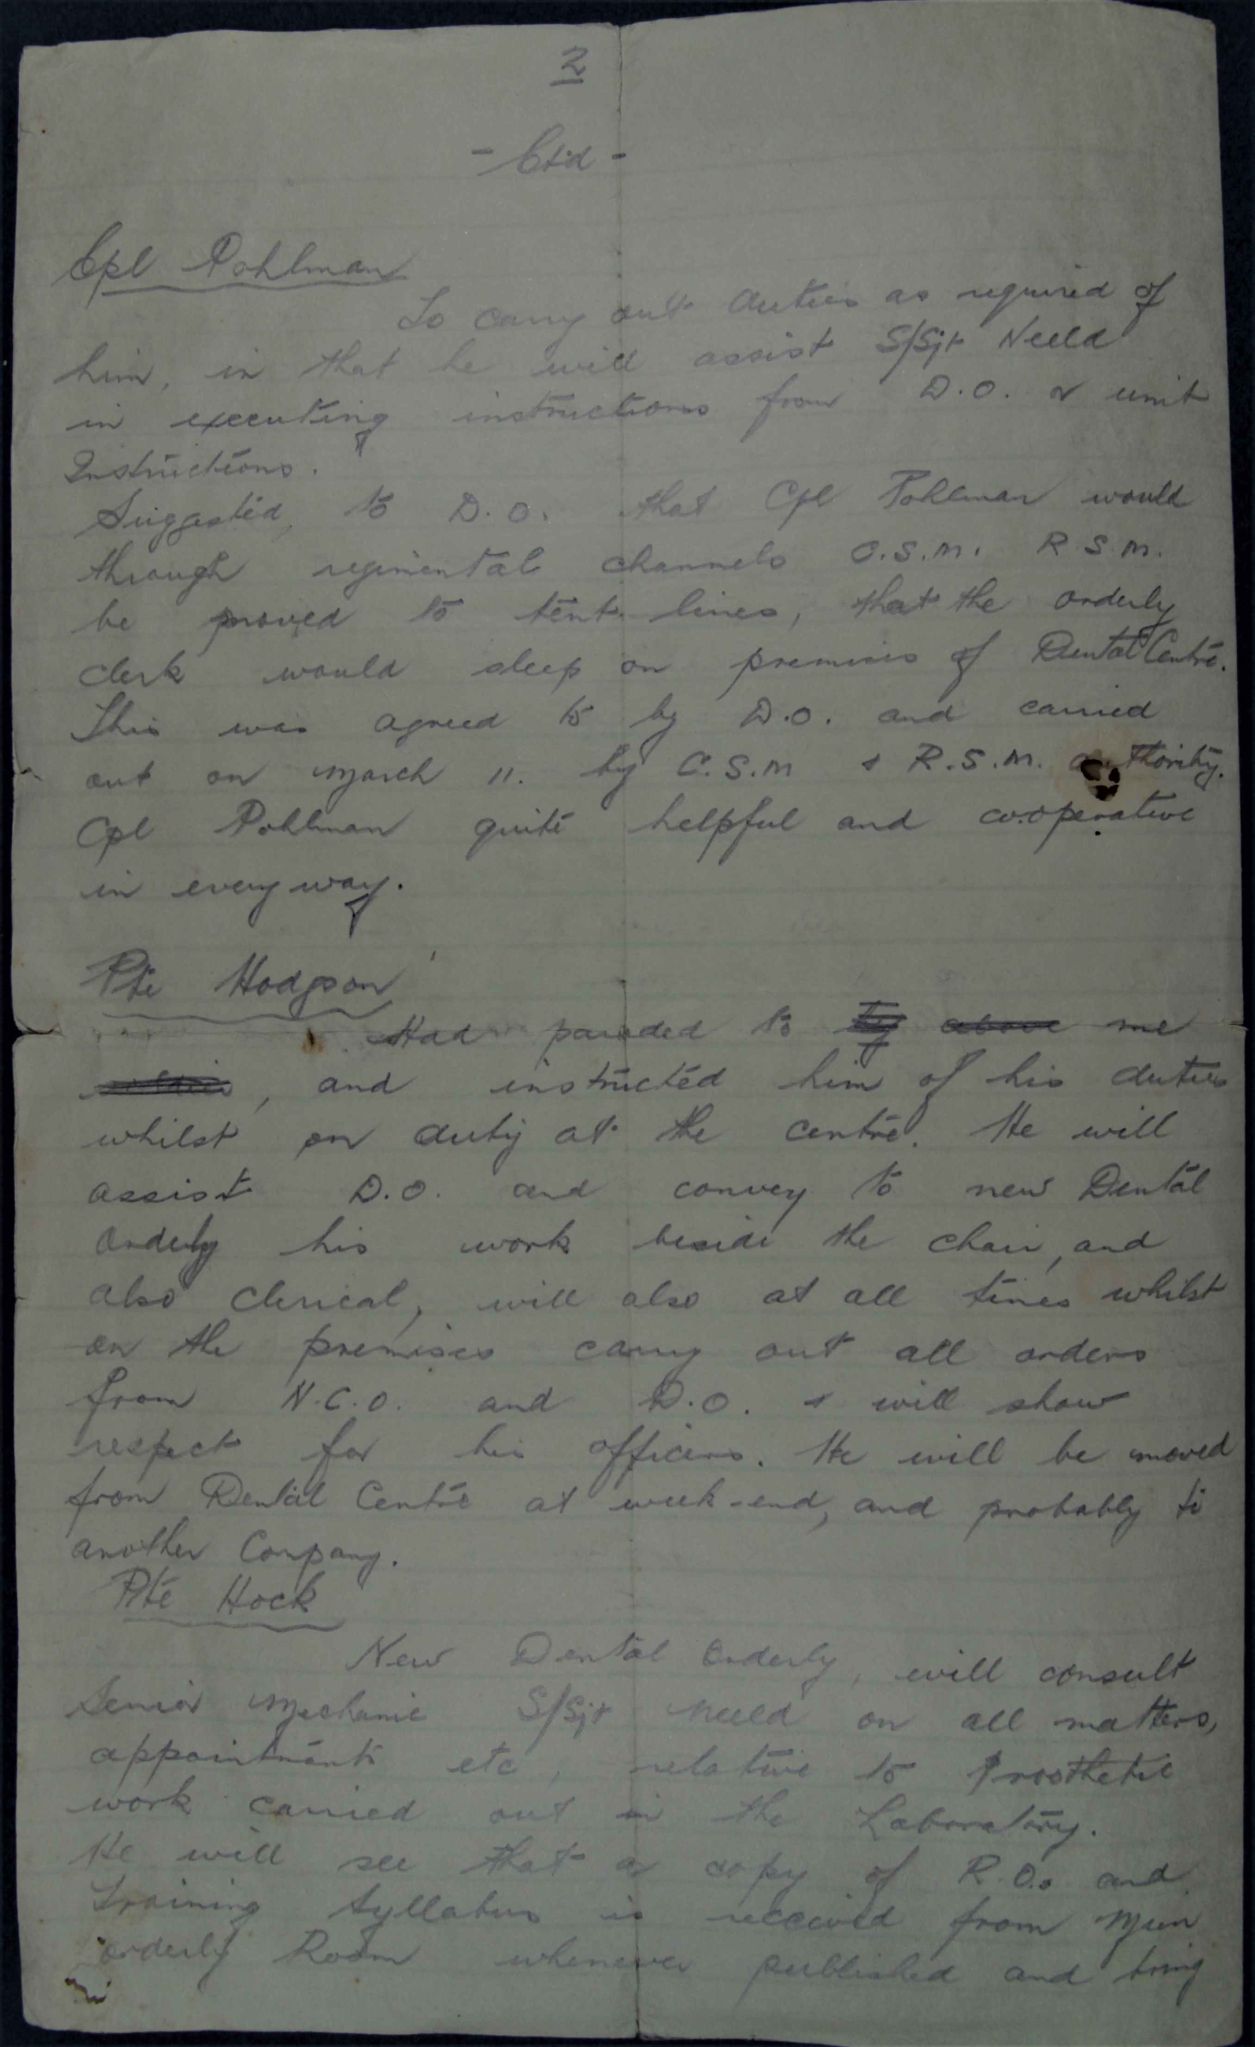 2
- Ctd -
Cpl Pohlman
To carry out duties as required of
him, in that he will assist S/Sjt Neeld
in executing instructions from D.O. or unit
Instructions.
Suggested, to D.O. that Cpl Pohlman would
through regimental channels C.S.M. R.S.M.
be moved to tent lines, that the orderly
clerk would sleep on premises of Dental Centre.
This was agreed to by D.O. and carried
out on March 11. by C.S.M & R.S.M. authority.
Cpl Pohlman quite helpful and cooperative
in every way.
Pte Hodgson
Had paraded to by above me
, and instructed him of his duties
whilst on duty at the centre. He will
assist D.O. and convey to new Dental
Orderly his work beside the chair, and
also clerical, will also at all times whilst
on the premises carry out all orders
from N.C.O. and D.O. & will show
respect for his officers. He will be moved
from Dental Centre at week-end, and probably to
another Company.
Pte Hock
New Dental Orderly, will consult
Senior Mechanic S/Sjt Neeld on all matters,
appointments etc, relative to Prosthetic
work carried out in the Laboratory.
He will see that a copy of R.O.s and
Training Syllabus is received from
orderly Room whenever published and bring